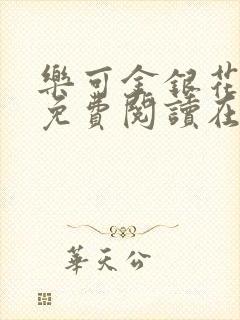 樂可金銀花
免費閱讀在
華天公